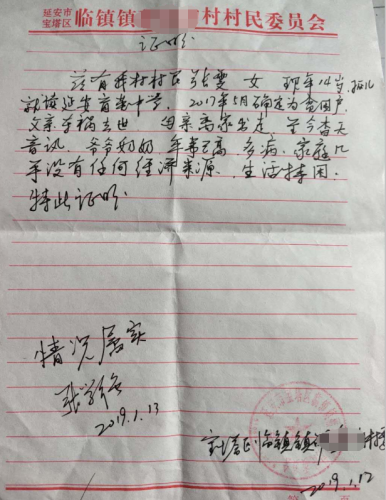 延安市
宝塔区 临镇镇 村村民委员会
证明
兹有我村村民张雯 女 现年14岁 孤儿
就读延安育英中学, 2017年5月确定为贫困户
父亲车祸去世 母亲离家出走 至今杳无
音讯, 爷爷奶奶 年事已高 多病, 家庭几
乎没有任何经济来源, 生活特困。
特此证明
情况属实
2019.1.13
宝塔区临镇镇 村委
2019.1.12